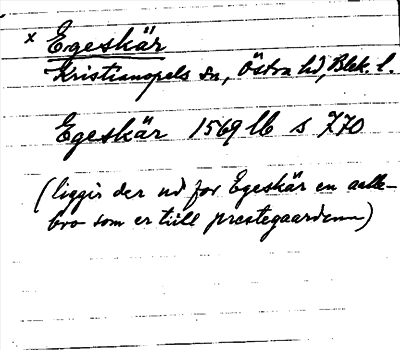 x Egeskär
Kristianopels sn, Östra hd, Blek. l.
Egeskär 1569 lb s 770
(liggis der ud for Egeskär en aalle-
bro som er tiill prestegaardenn)